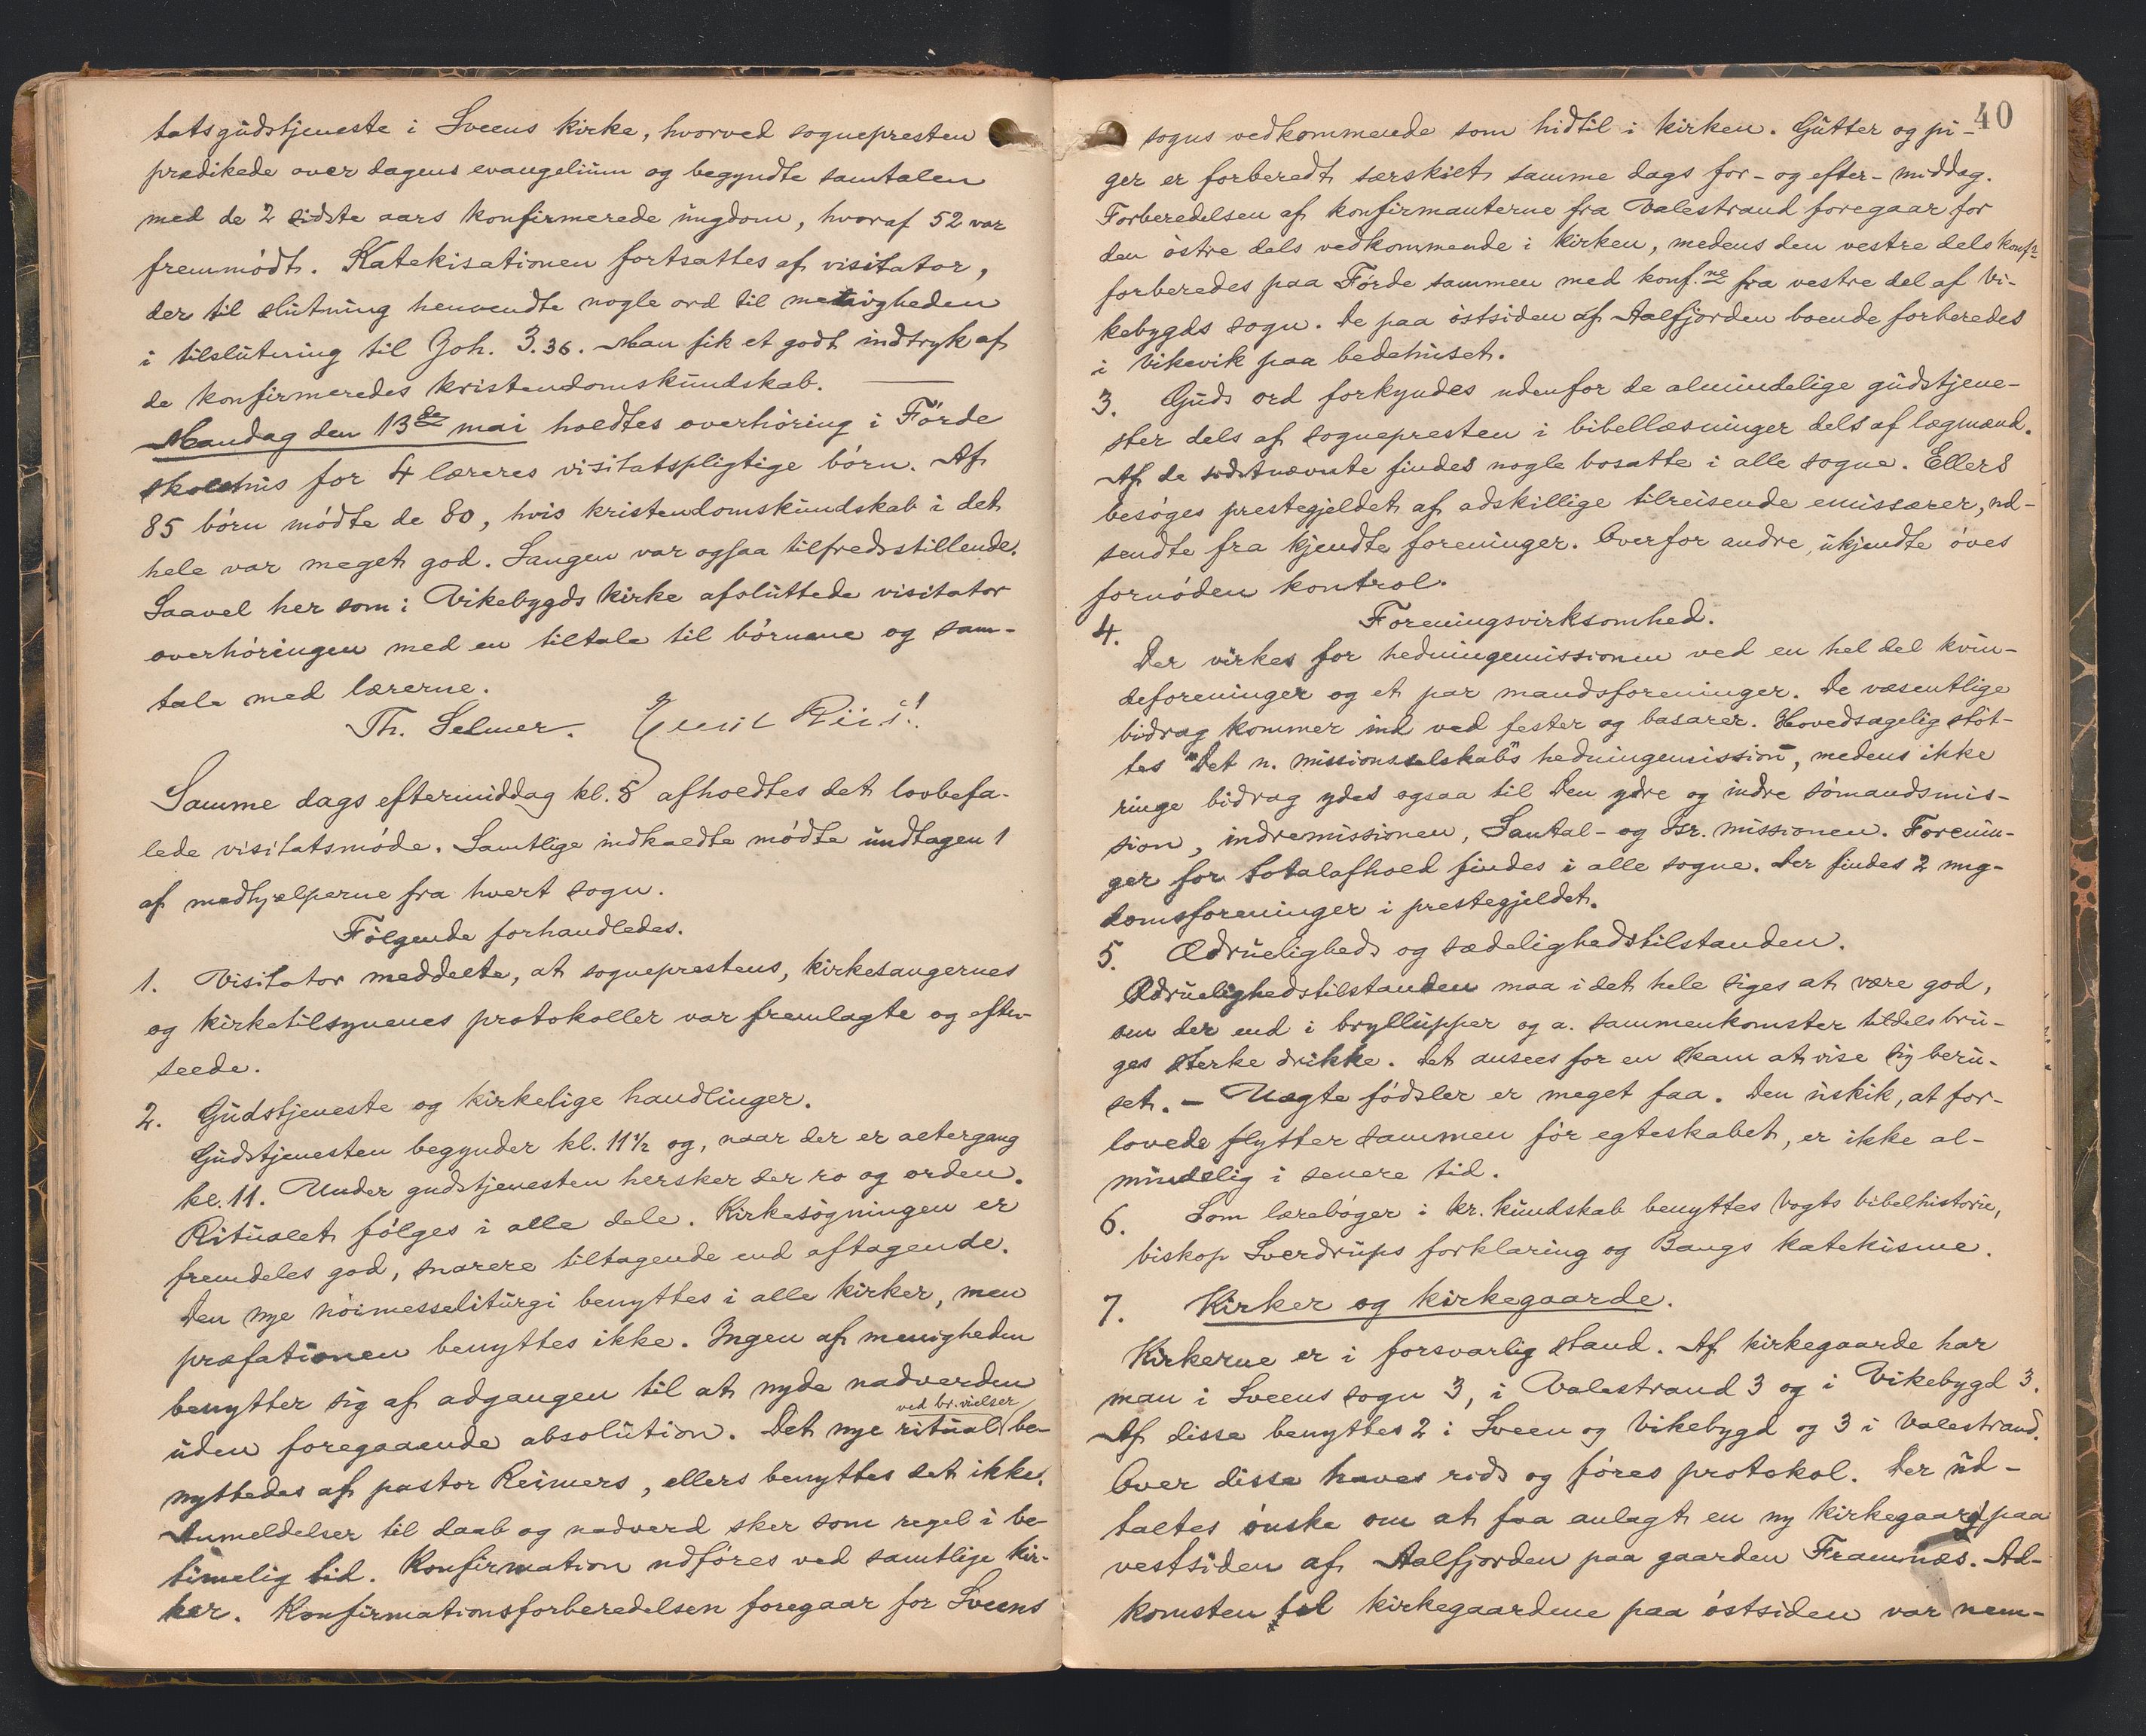 tatsgudstjeneste i Sveens kirke, hvorved sognepresten
prædikede over dagens evangelium og begyndte samtalen
med de 2 sidste aars konfirmerede ungdom, hvoraf 52 var
fremmødt. Katekisationen fortsattes af visitator,
der til slutning henvendte nogle ord til menigheden
i tilslutning til Joh. 3.36. Man fik et godt indtryk af
de konfirmeredes kristendomskundskab. —
Mandag den 13de mai holdtes overhøring i Førde
skolehus for 4 læreres visitatspligtige børn. Af
85 børn mødte de 80, hvis kristendomskundskab i det
hele var meget god. Sangen var ogsaa tilfredsstillende.
Saavel her som i Vikebygds kirke afsluttede visitator
overhøringen med en tiltale til børnene og sam-
tale med lærerne.
Th. Selmer.
Samme dags eftermiddag kl. 5 afholdtes det lovbefa-
lede visitatsmøde. Samtlige indkaldte mødte undtagen 1
af medhjælperne fra hvert sogn.
Følgende forhandledes.
1. Visitator meddelte, at sogneprestens, kirkesangernes
og kirketilsynenes protokoller var fremlagte og efter-
seede.
2. Gudstjeneste og kirkelige handlinger.
Gudstjenesten begynder kl. 11 1/2 og, naar der er altergang
kl. 11. Under gudstjenesten hersker der ro og orden.
Ritualet følges i alle dele. Kirkesøgningen er
fremdeles god, snarere tiltagende end aftagende.
Den nye høimesseliturgi benyttes i alle kirker, men
præfationen benyttes ikke. Ingen af menigheden
benytter sig af adgangen til at nyde nadverden
ved br. vielser
uden foregaaende absolution. Det nye ritual be-
nyttedes af pastor Reimers, ellers benyttes det ikke.
Anmeldelser til daab og nadverd sker som regel i be-
timelig tid. Konfirmation udføres ved samtlige kir-
ker. Konfirmationsforberedelsen foregaar for Sveens
40
sogns vedkommende som hidtil i kirken. Gutter og pi-
ger er forberedt særskilt samme dags for- og efter-middag.
Forberedelsen af konfirmanterne fra Valestrand foregaar for
den østre dels vedkommende i kirken, medens den vestre dels konf.
forberedes paa Førde sammen med konf.ne fra vestre del af Vi-
kebygds sogn. De paa østsiden af Aalfjorden boende forberedes
i Vikevik paa bedehuset.
3. Guds ord forkyndes udenfor de almindelige gudstjene-
ster dels af sognepresten i bibellæsninger dels af lægmænd.
Af de sidstnævnte findes nogle bosatte i alle sogne. Ellers
besøges prestegjeldet af adskillige tilreisende emissærer, ud-
sendte fra kjendte foreninger. Overfor andre, ukjendte øves
fornøden kontrol.
4. Foreningsvirksomhed.
Der virkes for hedningemissionen ved en hel del kvin-
deforeninger og et par mandsforeninger. De væsentlige
bidrag kommer ind ved fester og basarer. Hovedsagelig støt-
tes "Det n. missionsselskab"s hedningemission, medens ikke
ringe bidrag ydes ogsaa til den ydre og indre sømandsmis-
sion, indremissionen, Santal- og Isr. missionen. Forenin-
ger for totalafhold findes i alle sogne. Der findes 2 ung-
domsforeninger i prestegjeldet.
5. Ædrueligheds og sædelighedstilstanden.
Ædruelighedstilstanden maa i det hele siges at være god,
om der end i brylluper og a. sammenkomster tildels bru-
ges sterke drikke. Det ansees for en skam at vise sig beru-
set. – Uægte fødsler er meget faa. Den uskik, at for-
lovede flytter sammen før egteskabet, er ikke al-
mindelig i senere tid.
6. Som lærebøger i kr. kundskab benyttes Vogts bibelhistorie,
biskop Sverdrups forklaring og Bangs katekisme.
7. Kirker og kirkegaarde.
Kirkerne er i forsvarlig stand. Af kirkegaarde har
man i Sveens sogn 3, i Valestrand 3 og i Vikebygd 3.
Af disse benyttes 2 i Sveen og Vikebygd og 3 i Valestrand.
Over disse haves rids og føres protokol. Der ud-
taltes ønske om at faa anlagt en ny kirkegaard paa
vestsiden af Aalfjorden paa gaarden Framnæs. Ad-
komsten til kirkegaardene paa østsiden var nem-